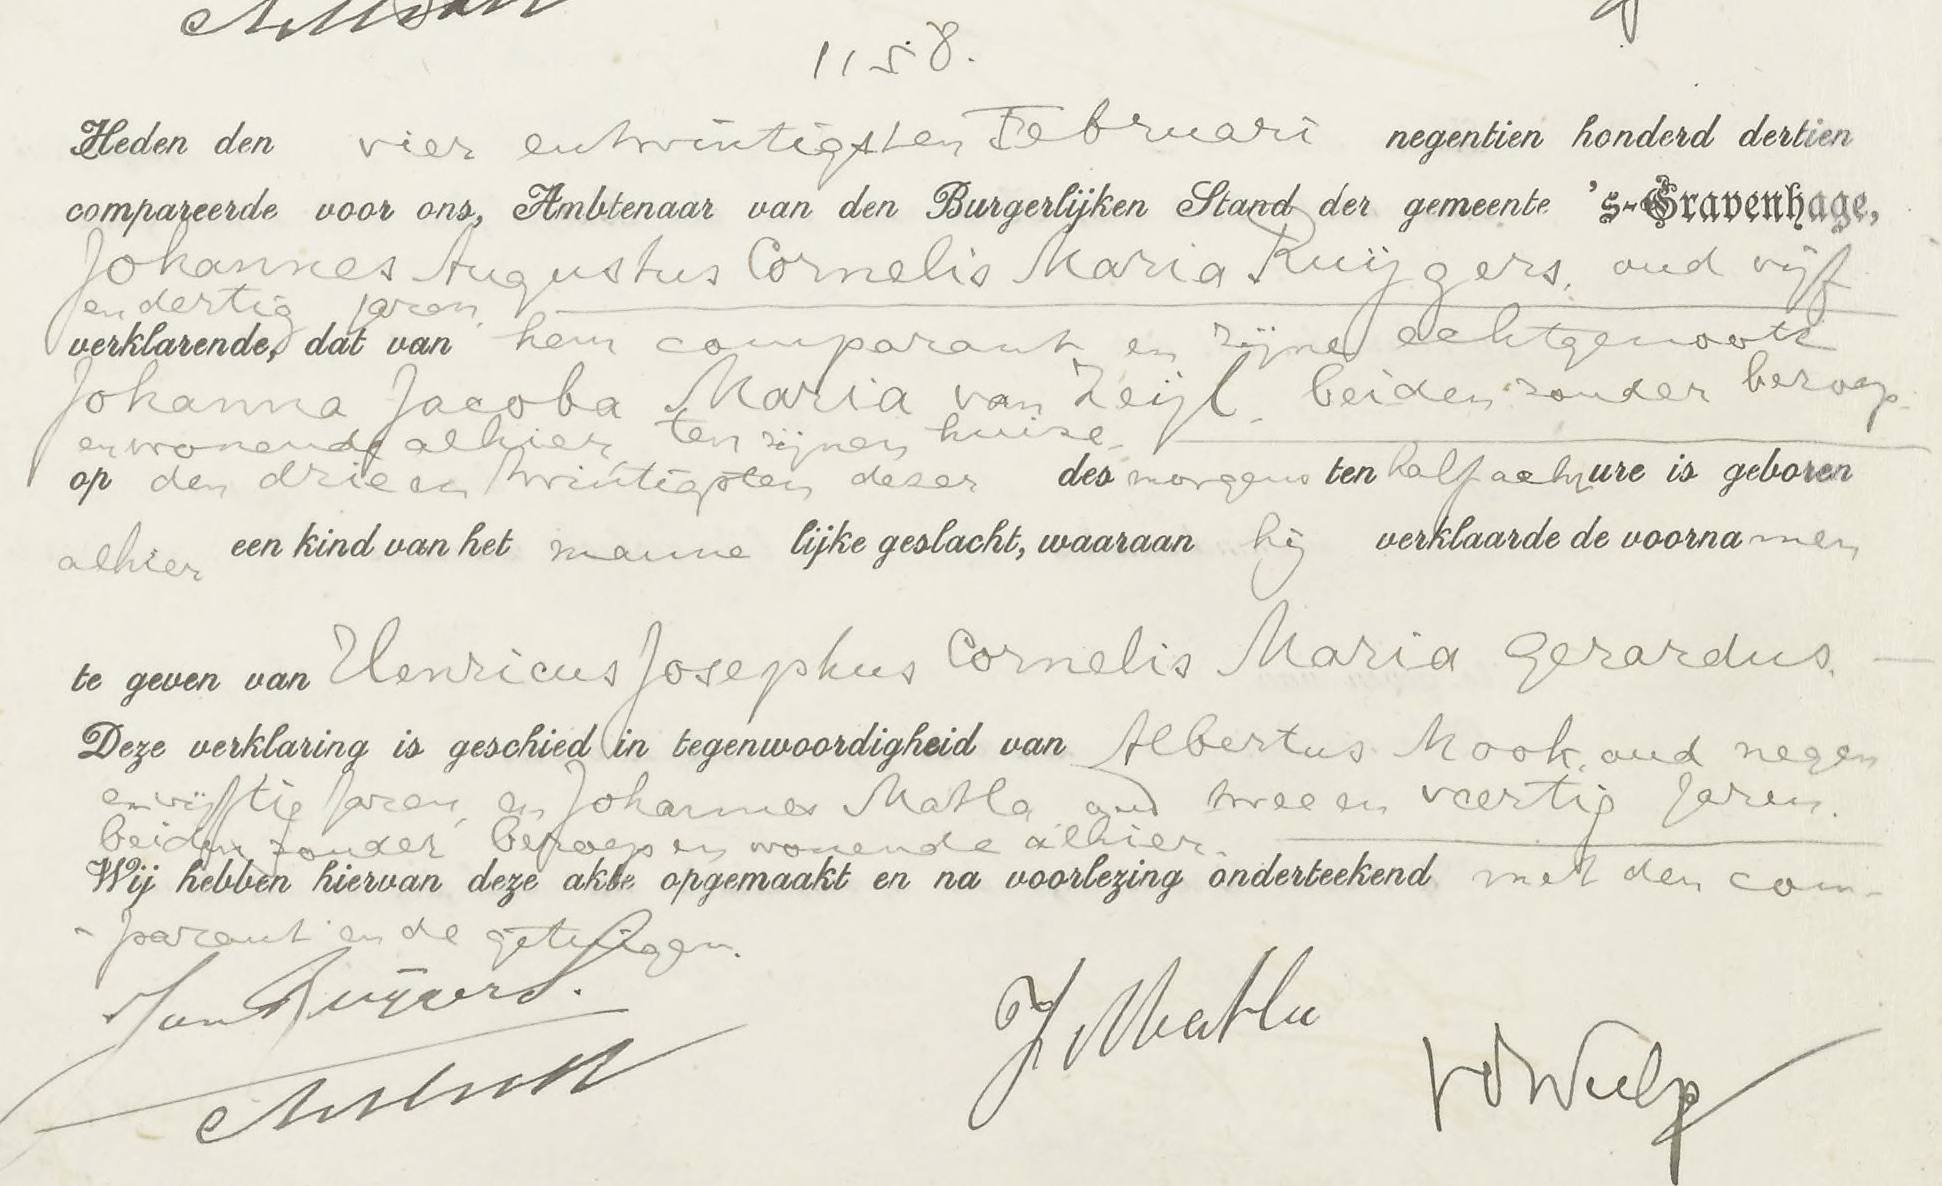 1158.
Heden den vier en twintigsten Februari negentien honderd dertien
compareerde voor ons, Ambtenaar van den Burgerlijken Stand der gemeente 's-Gravenhage,
Johannes Augustus Cornelis Maria Ruijgers, oud vijf
en dertig jaren,
verklarende, dat van hem comparant en zijne echtgenoote
Johanna Jacoba Maria van Zeijl, beiden zonder beroep
en wonende alhier, ten zijnen huize
op den drie en twintigsten dezer des morgens ten half acht ure is geboren
alhier een kind van het manne lijke geslacht, waaraan hij verklaarde de voorna men
te geven van Henricus Josephus Cornelis Maria Gerardus.
Deze verklaring is geschied in tegenwoordigheid van Albertus Mook, oud negen
en vijftig jaren, en Johannes Matla, oud twee en veertig jaren.
beiden zonder beroep en wonende alhier.
Wij hebben hiervan deze akte opgemaakt en na voorlezing onderteekend met den com-
-parant en de getuigen.
Jan Ruijgers.
J Matla
AMook
vdWulp